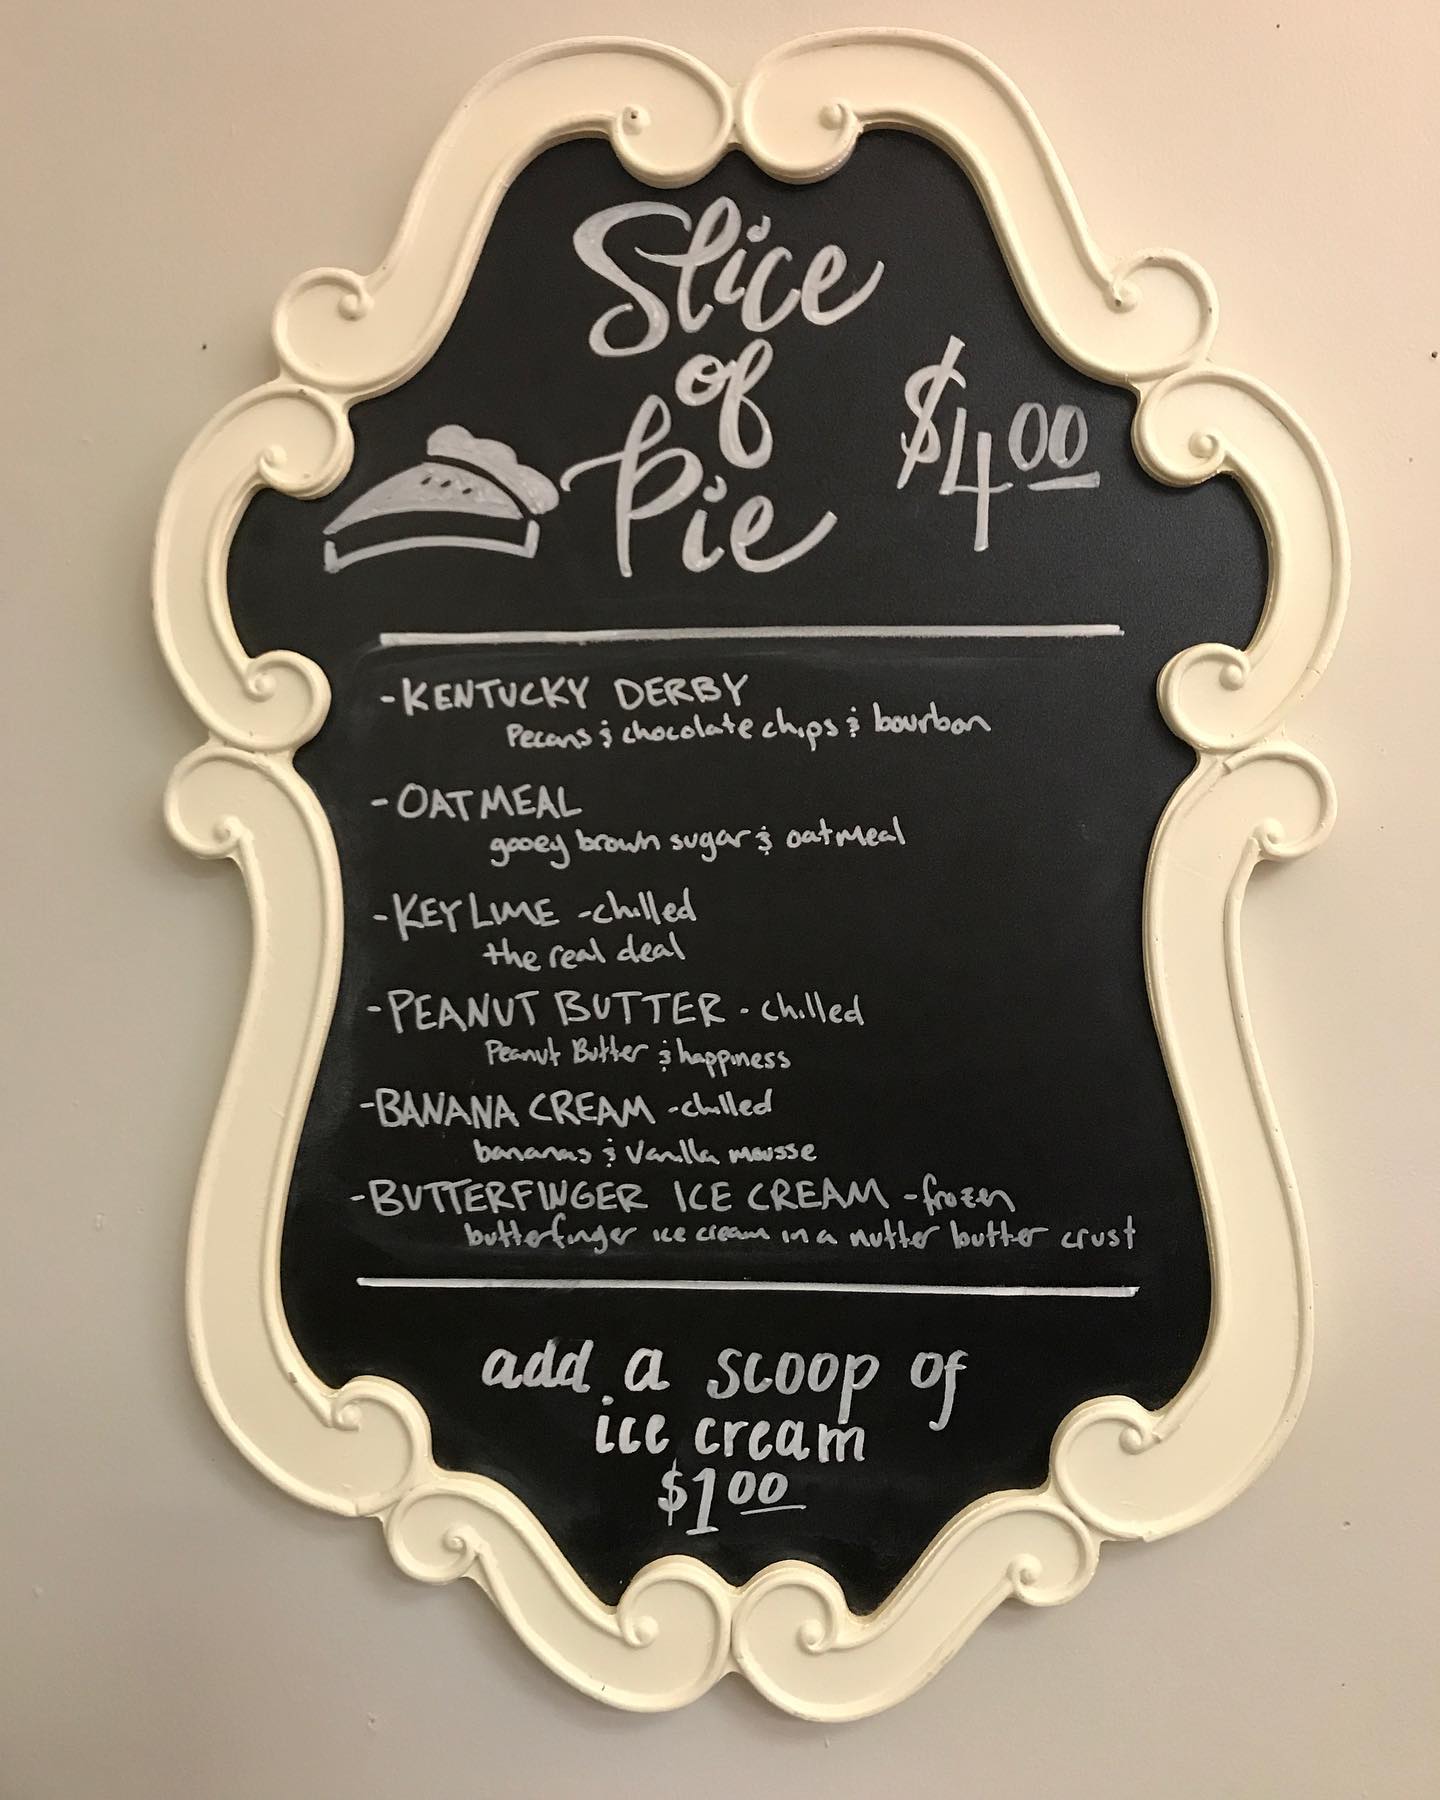 Slice
of
Pie
$4.00
-KENTUCKY DERBY
Pecans & chocolate chips & bourbon
-OATMEAL
gooey brown sugar & oatmeal
-KEY LIME -chilled
the real deal
-PEANUT BUTTER - chilled
Peanut Butter & happiness
-BANANA CREAM -chilled
bananas & Vanilla mousse
-BUTTERFINGER ICE CREAM -frozen
butterfinger ice cream in a nutter butter crust
add a scoop of
ice cream
$1.00